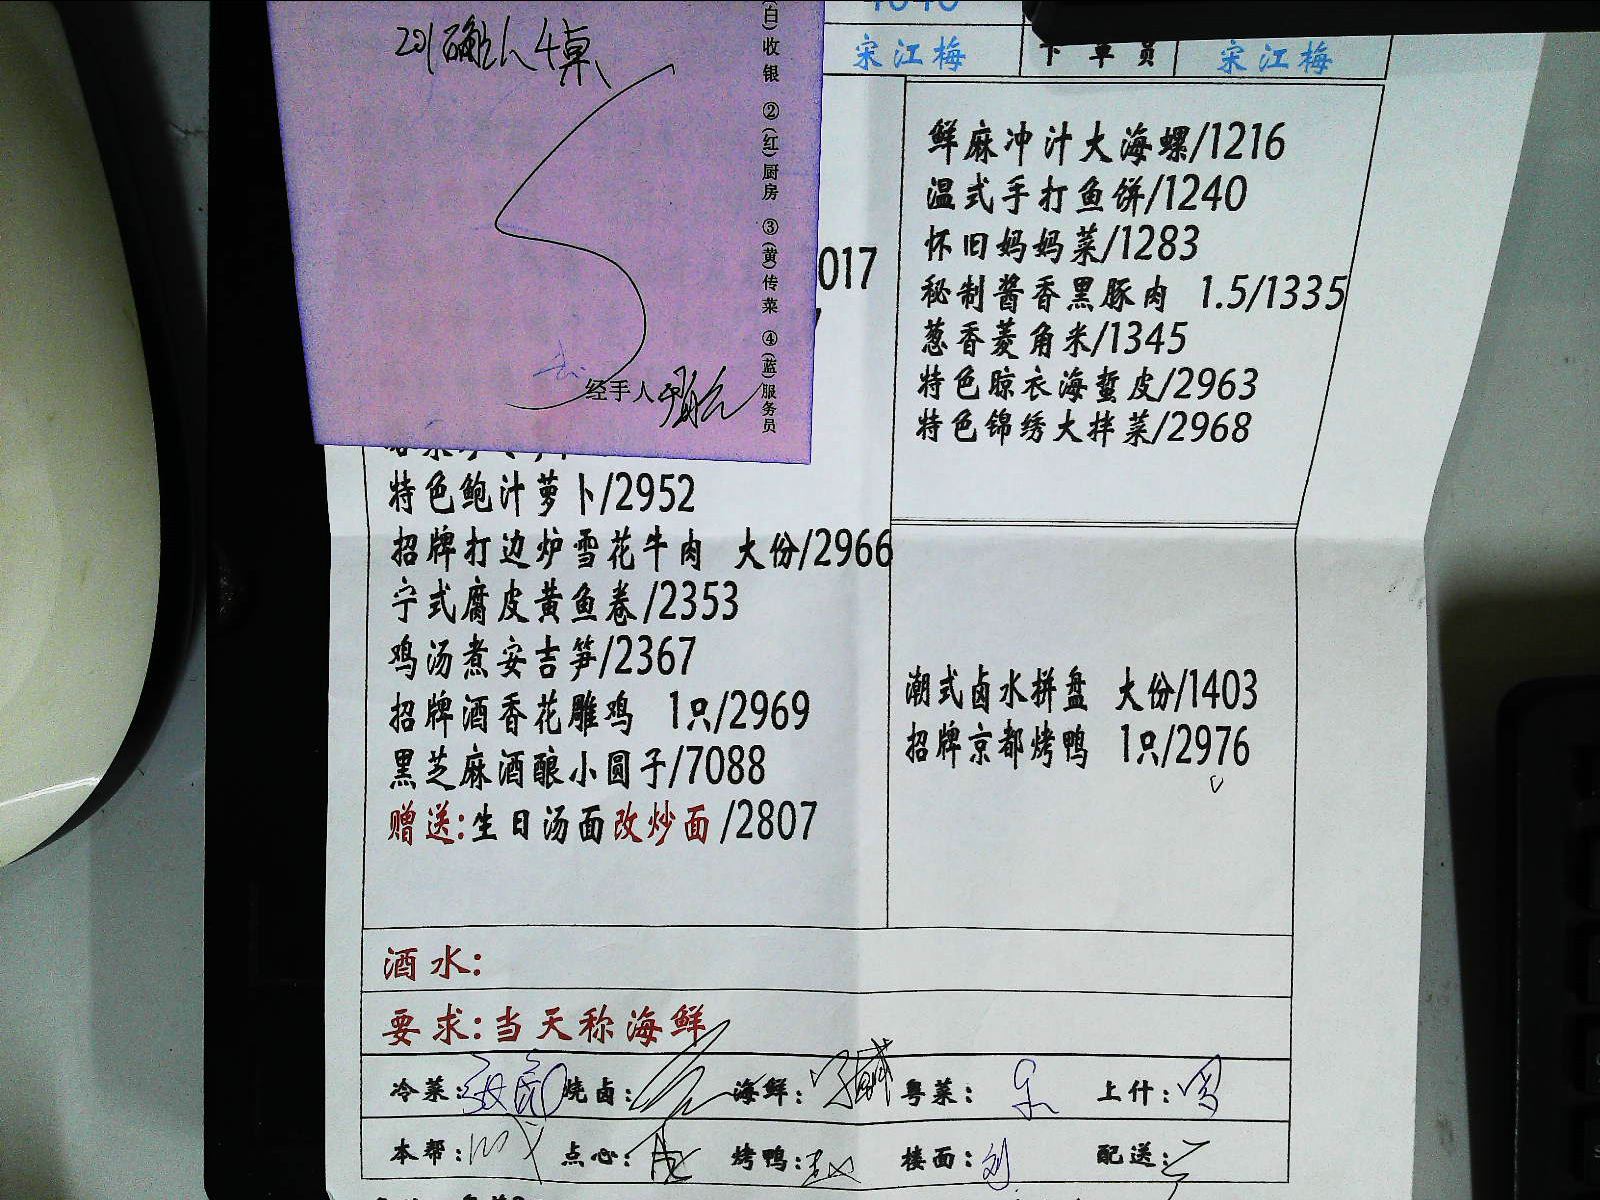 201确认4桌
(白)收银 ②(红)厨房 ③(黄)传菜 ④(蓝)服务员
经手人
宋江梅 下单员 宋江梅
017
鲜麻冲汁大海螺/1216
温式手打鱼饼/1240
怀旧妈妈菜/1283
秘制酱香黑豚肉 1.5/1335
葱香菱角米/1345
特色晾衣海蜇皮/2963
特色锦绣大拌菜/2968
特色鲍汁萝卜/2952
招牌打边炉雪花牛肉 大份/2966
宁式腐皮黄鱼卷/2353
鸡汤煮安吉笋/2367
招牌酒香花雕鸡 1只/2969
黑芝麻酒酿小圆子/7088
赠送:生日汤面改炒面/2807
潮式卤水拼盘 大份/1403
招牌京都烤鸭 1只/2976
酒水:
要求:当天称海鲜
冷菜: 烧卤: 海鲜: 粤菜: 上什:
本帮: 点心: 烤鸭: 楼面: 刘 配送: